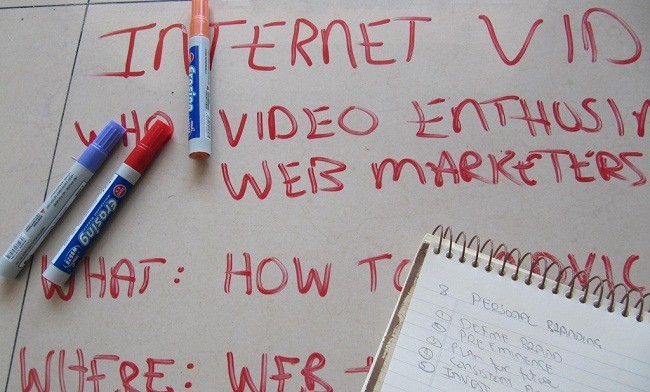 INTERNET VID
WHO VIDEO ENTHUSI
WEB MARKETERS
WHAT: HOW TO
WHERE: WEB
Erasing
8 PERSONAL BRANDING
① DEFINE BRAND
② PREEMINENCE
③ Plan for
④ CONSISTENT
⑤ INVEST